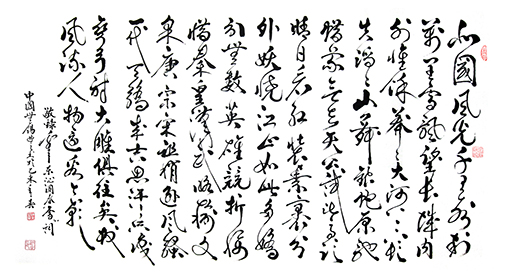 北國風光千里冰封
萬里雪飄望長城內
外惟餘莽莽大河上下頓
失滔滔山舞銀蛇原馳
蠟象欲與天公試比高須
晴日看紅裝素裹分
外妖嬈江山如此多嬌
引無數英雄競折腰
惜秦皇漢武略輸文
采唐宗宋祖稍遜風騷
一代天驕成吉思汗只識
彎弓射大雕俱往矣數
風流人物還看今朝
敬録毛澤東沁園春雪詞
中國於乙未之春